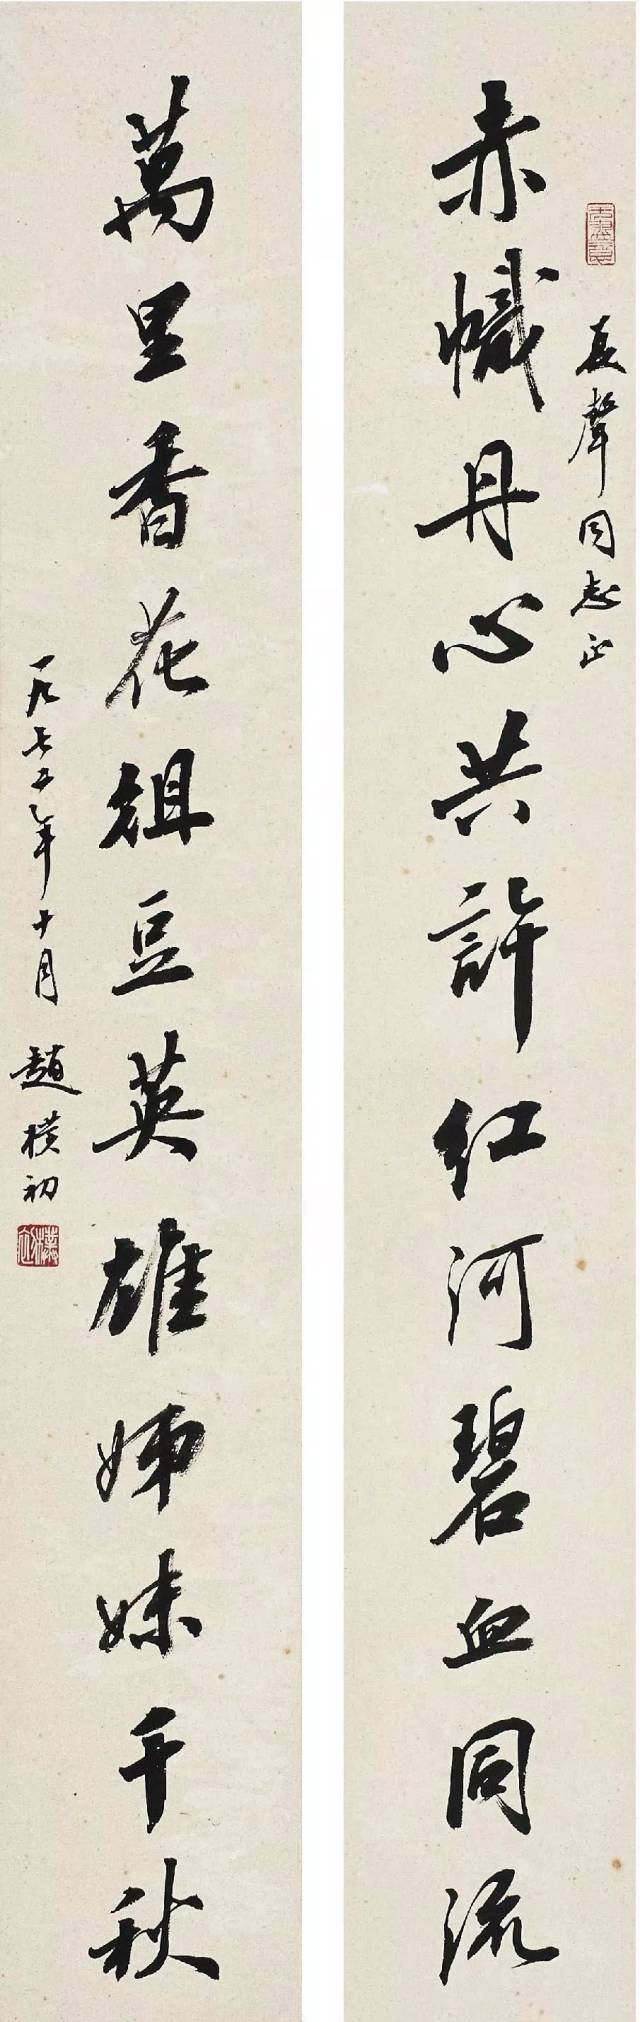 赤幟丹心共許红河碧血同流
聲同志正
萬里香花俎豆英雄姊妹千秋
一九七五年十月 趙樸初